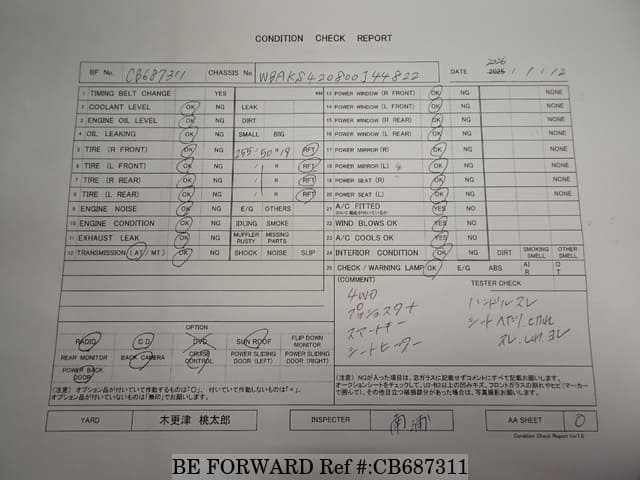 CONDITION CHECK REPORT
BF No. CB687311 CHASSIS No WBAKS420800J44822 DATE 2025 2026 / 1 / 12
1 TIMING BELT CHANGE YES KM 13 POWER WINDOW (R FRONT) OK NG NONE
2 COOLANT LEVEL OK NG LEAK 14 POWER WINDOW (L FRONT) OK NG NONE
3 ENGINE OIL LEVEL OK NG DIRT 15 POWER WINDOW (R REAR) OK NG NONE
4 OIL LEAKING OK NG SMALL BIG 16 POWER WINDOW (L REAR) OK NG NONE
5 TIRE (R FRONT) OK NG 255 / 50 R 19 RFT 17 POWER MIRROR (R) OK NG NONE
6 TIRE (L FRONT) OK NG / R RFT 18 POWER MIRROR (L) OK NG NONE
7 TIRE (R REAR) OK NG / R RFT 19 POWER SEAT (R) OK NG NONE
8 TIRE (L REAR) OK NG / R RFT 20 POWER SEAT (L) OK NG NONE
9 ENGINE NOISE OK NG E/G OTHERS 21 A/C FITTED YES NG
10 ENGINE CONDITION OK NG IDLING SMOKE 22 WIND BLOWS OK YES NG
11 EXHAUST LEAK OK NG MUFFLER RUSTY MISSING PARTS 23 A/C COOLS OK YES NG
12 TRANSMISSION (AT / MT) OK NG SHOCK NOISE SLIP 24 INTERIOR CONDITION OK NG DIRT SMOKING SMELL OTHER SMELL
25 CHECK / WARNING LAMP OK E/G ABS AIR OT
(COMMENT) TESTER CHECK
4WD
プッシュスタート
スマートキー
シートヒーター
ハンドルスレ
OPTION
RADIO CD DVD SUN ROOF FLIP DOWN MONITOR
REAR MONITOR BACK CAMERA CRUISE CONTROL POWER SLIDING DOOR (LEFT) POWER SLIDING DOOR (RIGHT)
POWER BACK DOOR
(注意) オプション品が付いていて作動するものは「〇」、付いていて作動しないものは「×」、
オプション品が付いていないものは「無印」でお願いします。
(注意) NGが入った項目は、必ガラスに記載せずコメントにすべて記載お願いします。
オークションシートをチェックして、U3・B3以上の凹みキズ、フロントガラスの割れやヒビ(マーカー
で囲んで)、その他目立つ破損部分があった場合は、写真撮影お願いします。
YARD 木更津 桃太郎 INSPECTER 南浦 AA SHEET 0
Condition Check Report Ver.1.5
BE FORWARD Ref #:CB687311